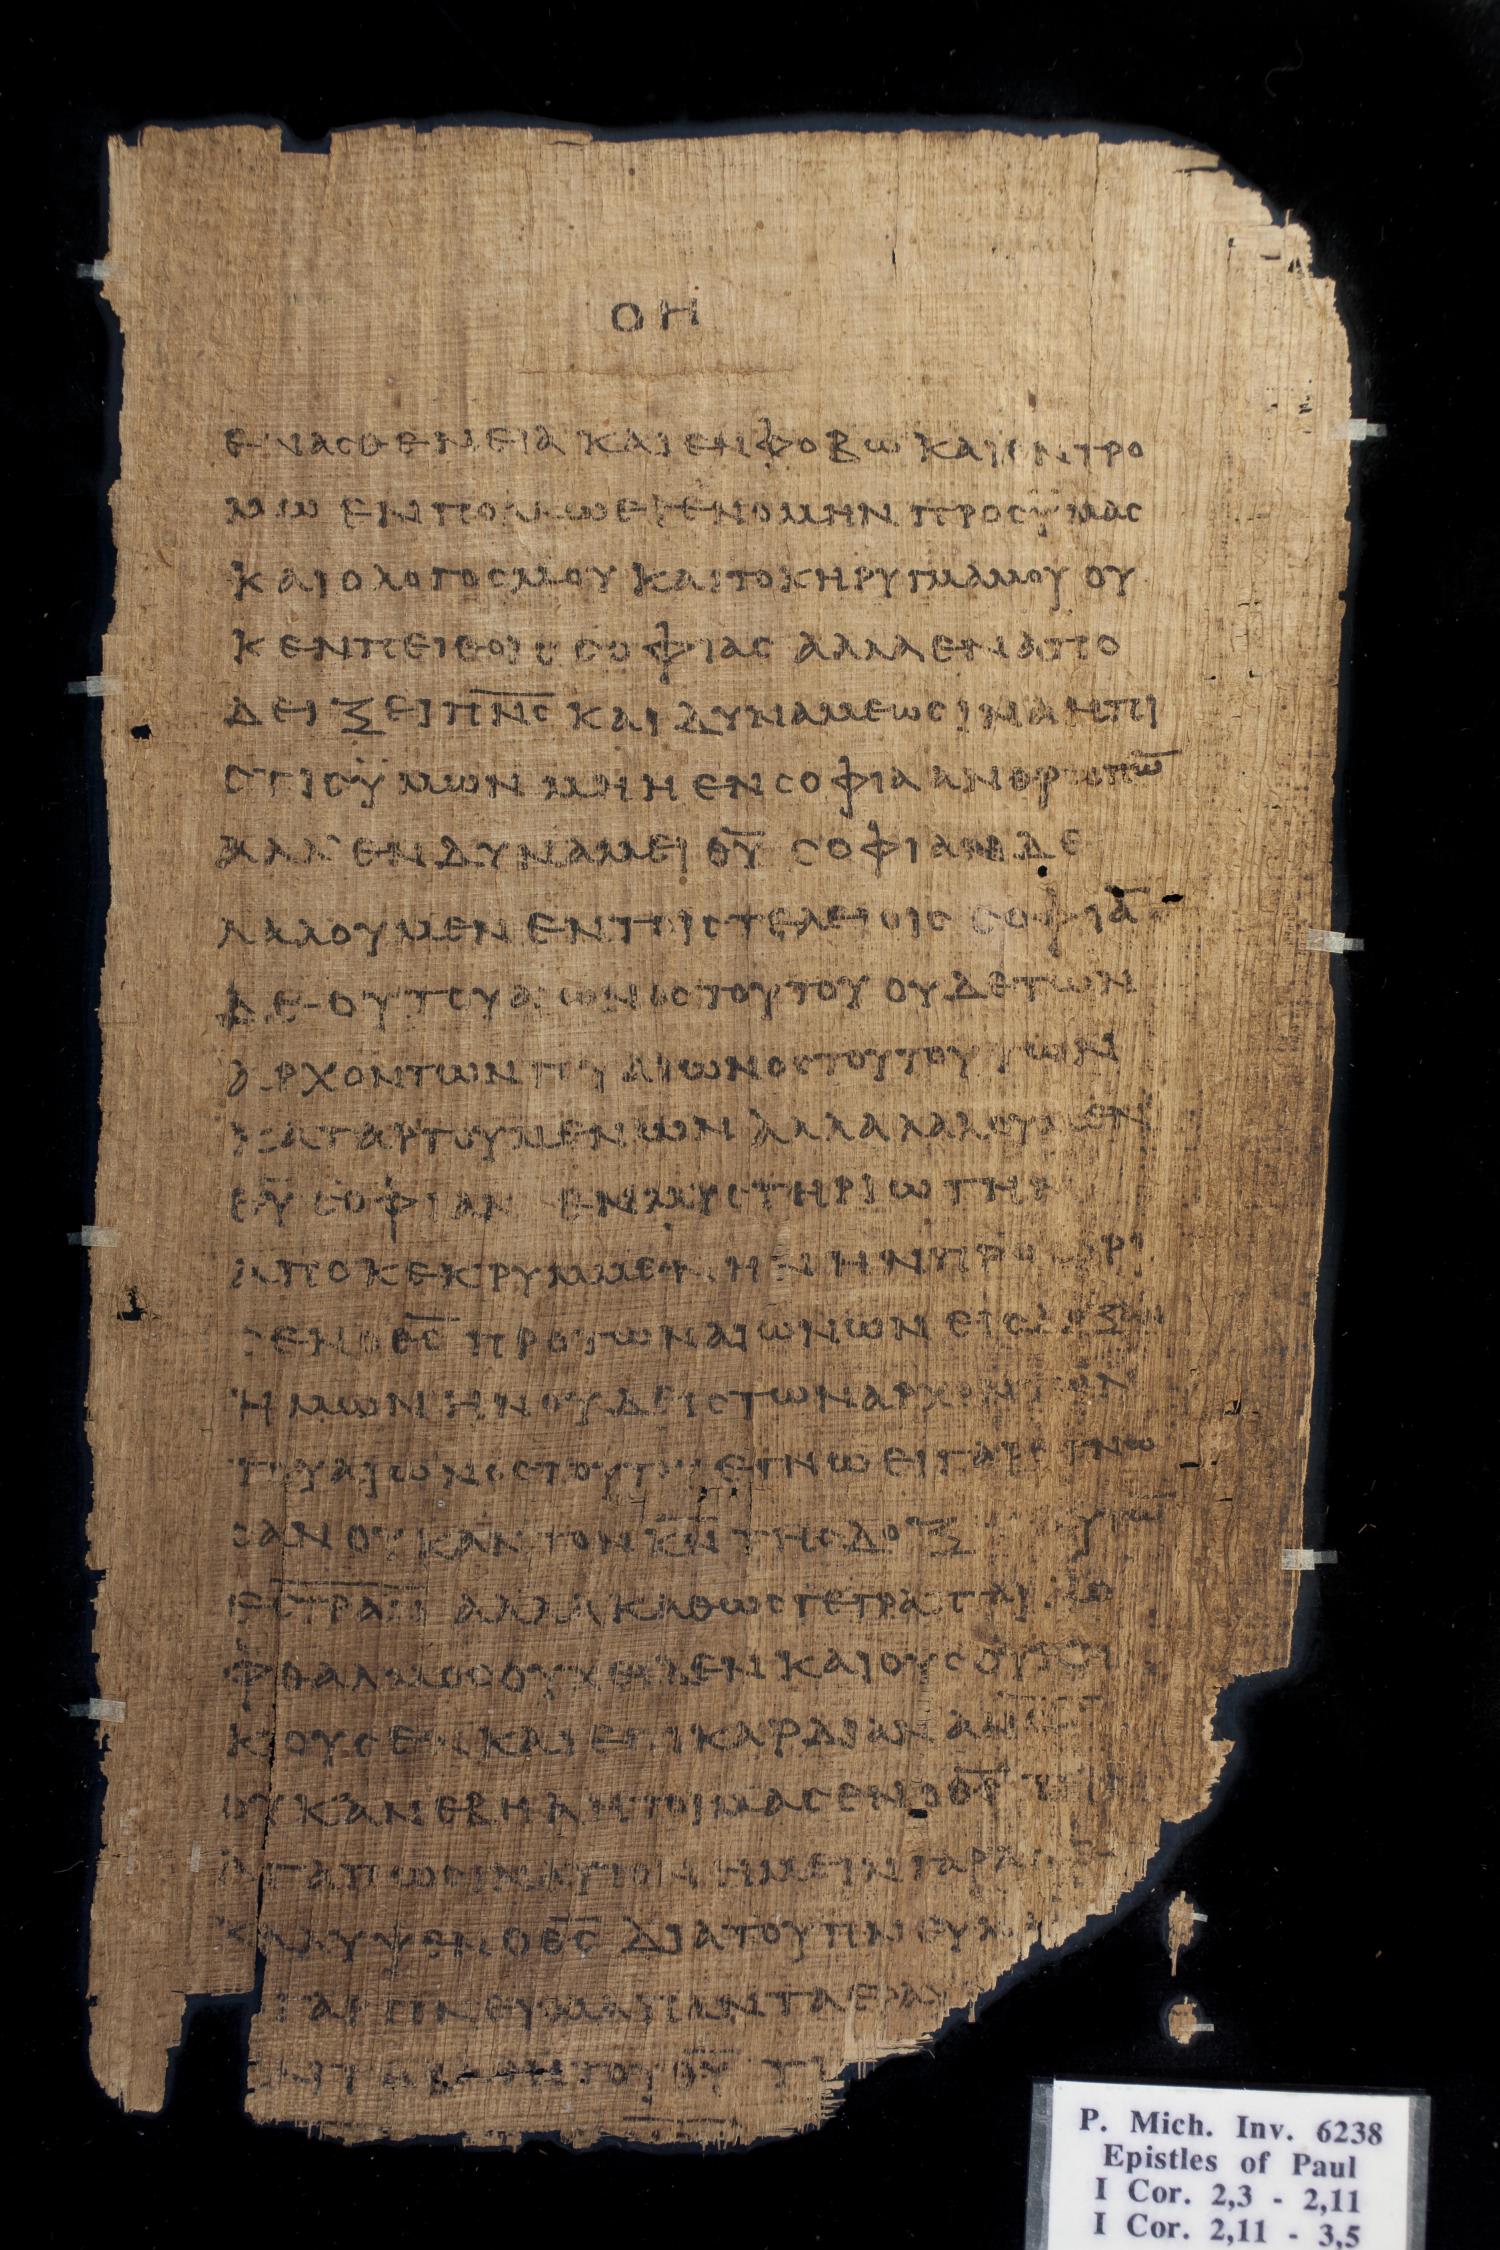 ΟΗ
ΕΝΑΣΘΕΝΕΙΑ ΚΑΙ ΕΝ ΦΟΒΩ ΚΑΙ ΕΝ ΤΡΟ
ΜΩ ΕΝ ΠΟΛΛΩ ΕΓΕΝΟΜΗΝ ΠΡΟΣ ΫΜΑΣ
ΚΑΙ Ο ΛΟΓΟΣ ΜΟΥ ΚΑΙ ΤΟ ΚΗΡΥΓΜΑ ΜΟΥ ΟΥ
Κ ΕΝ ΠΕΙΘΟΙΣ ΣΟΦΙΑΣ ΑΛΛΑ ΕΝ ΑΠΟ
ΔΕΙΞΕΙ Π̅Ν̅Σ̅ ΚΑΙ ΔΥΝΑΜΕΩΣ ΙΝΑ Η ΠΙ
ΣΤΙΣ ΫΜΩΝ ΜΗ Η ΕΝ ΣΟΦΙΑ ΑΝΘΡΩΠΩ̅
ΑΛΛ ΕΝ ΔΥΝΑΜΕΙ Θ̅Υ̅ ΣΟΦΙΑΝ ΔΕ
ΛΑΛΟΥΜΕΝ ΕΝ ΤΟΙΣ ΤΕΛΕΙΟΙΣ ΣΟΦΙΑ̅
ΔΕ ΟΥ ΤΟΥ ΑΙΩΝΟΣ ΤΟΥΤΟΥ ΟΥΔΕ ΤΩΝ
ΑΡΧΟΝΤΩΝ ΤΟΥ ΑΙΩΝΟΣ ΤΟΥΤΟΥ ΤΩΝ
ΚΑΤΑΡΓΟΥΜΕΝΩΝ ΑΛΛΑ ΛΑΛΟΥΜΕΝ
Θ̅Υ̅ ΣΟΦΙΑΝ ΕΝ ΜΥΣΤΗΡΙΩ ΤΗΝ
ΑΠΟΚΕΚΡΥΜΜΕΝΗΝ ΗΝ ΠΡΟΩΡΙ
ΣΕΝ Ο Θ̅Σ̅ ΠΡΟ ΤΩΝ ΑΙΩΝΩΝ ΕΙΣ ΔΟΞΑΝ
ΗΜΩΝ ΗΝ ΟΥΔΕΙΣ ΤΩΝ ΑΡΧΟΝΤΩΝ
ΤΟΥ ΑΙΩΝΟΣ ΤΟΥΤΟΥ ΕΓΝΩ ΕΙ ΓΑΡ ΕΓΝΩ
ΣΑΝ ΟΥΚ ΑΝ ΤΟΝ Κ̅Ν̅ ΤΗΣ ΔΟΞ
ΕΣΤΡΑΝ ΑΛΛΑ ΚΑΘΩΣ ΓΕΓΡΑΠΤΑΙ Α Ο
ΦΘΑΛΜΟΣ ΟΥΧ ΕΙΔΕΝ ΚΑΙ ΟΥΣ ΟΥΚ
ΚΟΥΣΕΝ ΚΑΙ ΕΠΙ ΚΑΡΔΙΑΝ
ΟΥΚ ΑΝΕΒΗ Α ΗΤΟΙΜΑΣΕΝ Ο Θ̅Σ̅ ΤΟΙΣ
ΑΓΑΠΩΣΙΝ ΑΥΤΟΝ ΗΜΕΙΝ ΓΑΡ
ΚΑΛΥΨΕΝ Ο Θ̅Σ̅ ΔΙΑ ΤΟΥ ΠΝΕΥΜ
ΓΑΡ ΠΝΕΥΜΑ ΠΑΝΤΑ ΕΡΑΥ
ΤΟΥ Θ̅Υ̅ ΤΙ
P. Mich. Inv. 6238
Epistles of Paul
I Cor. 2,3 - 2,11
I Cor. 2,11 - 3,5